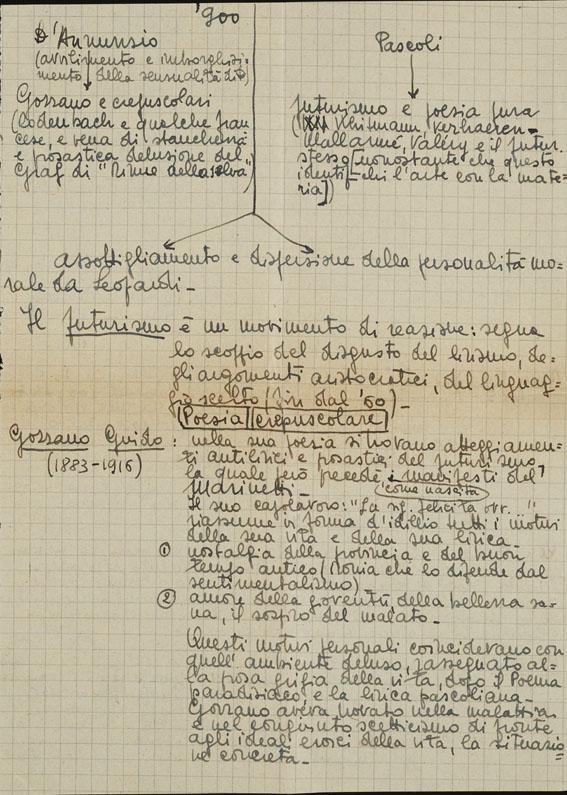 '900
D'Annunzio
(avvilimento e imborghesi=
mento della sensualità di D)
Gozzano e crepuscolari
(Rodenbach e qualche fran
cese, e vena di stanchezza
e prosastica delusione del
Graf di "Rime della selva")
Pascoli
futurismo e poesia pura
(Whitmann, Verhaeren-
Mallarmé, Valéry e il futur.
stesso [nonostante che questo
identifichi l'arte con la mate=
ria])
assottigliamento e dispersione della personalità mo=
rale da Leopardi -
Il futurismo è un movimento di reazione: segna
lo scoppio del disgusto del lirismo, de=
gli argomenti aristocratici, del linguag=
gio scelto (fin dal '60) -
Poesia crepuscolare
Gozzano Guido: nella sua poesia si trovano atteggiamen=
(1883-1916) ti antilirici e prosastici del futurismo
la quale però precede i manifesti del
Marinetti - come nascita
Il suo capolavoro: "La sig. felicita ovv..."
riassume in forma d'idillio tutti i motivi
della sua vita e della sua lirica -
① nostalgia della provincia e del buon
tempo antico (ironia che lo difende dal
sentimentalismo)
② amore della gioventù, della bellezza sa=
na, il sospiro del malato -
Questi motivi personali coincidevano con
quell'ambiente deluso, rassegnato al=
la prosa grigia della vita, dopo il Poema
paradisiaco e la lirica pascoliana -
Gozzano aveva trovato nella malattia
e nel congiunto scetticismo di fronte
agli ideali eroici della vita, la situazio
ne concreta -